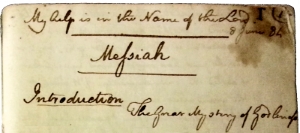 My help is in the Name of the Lord
8 June 84
Meſsiah
Introduction
The Great Mystery of Godliness